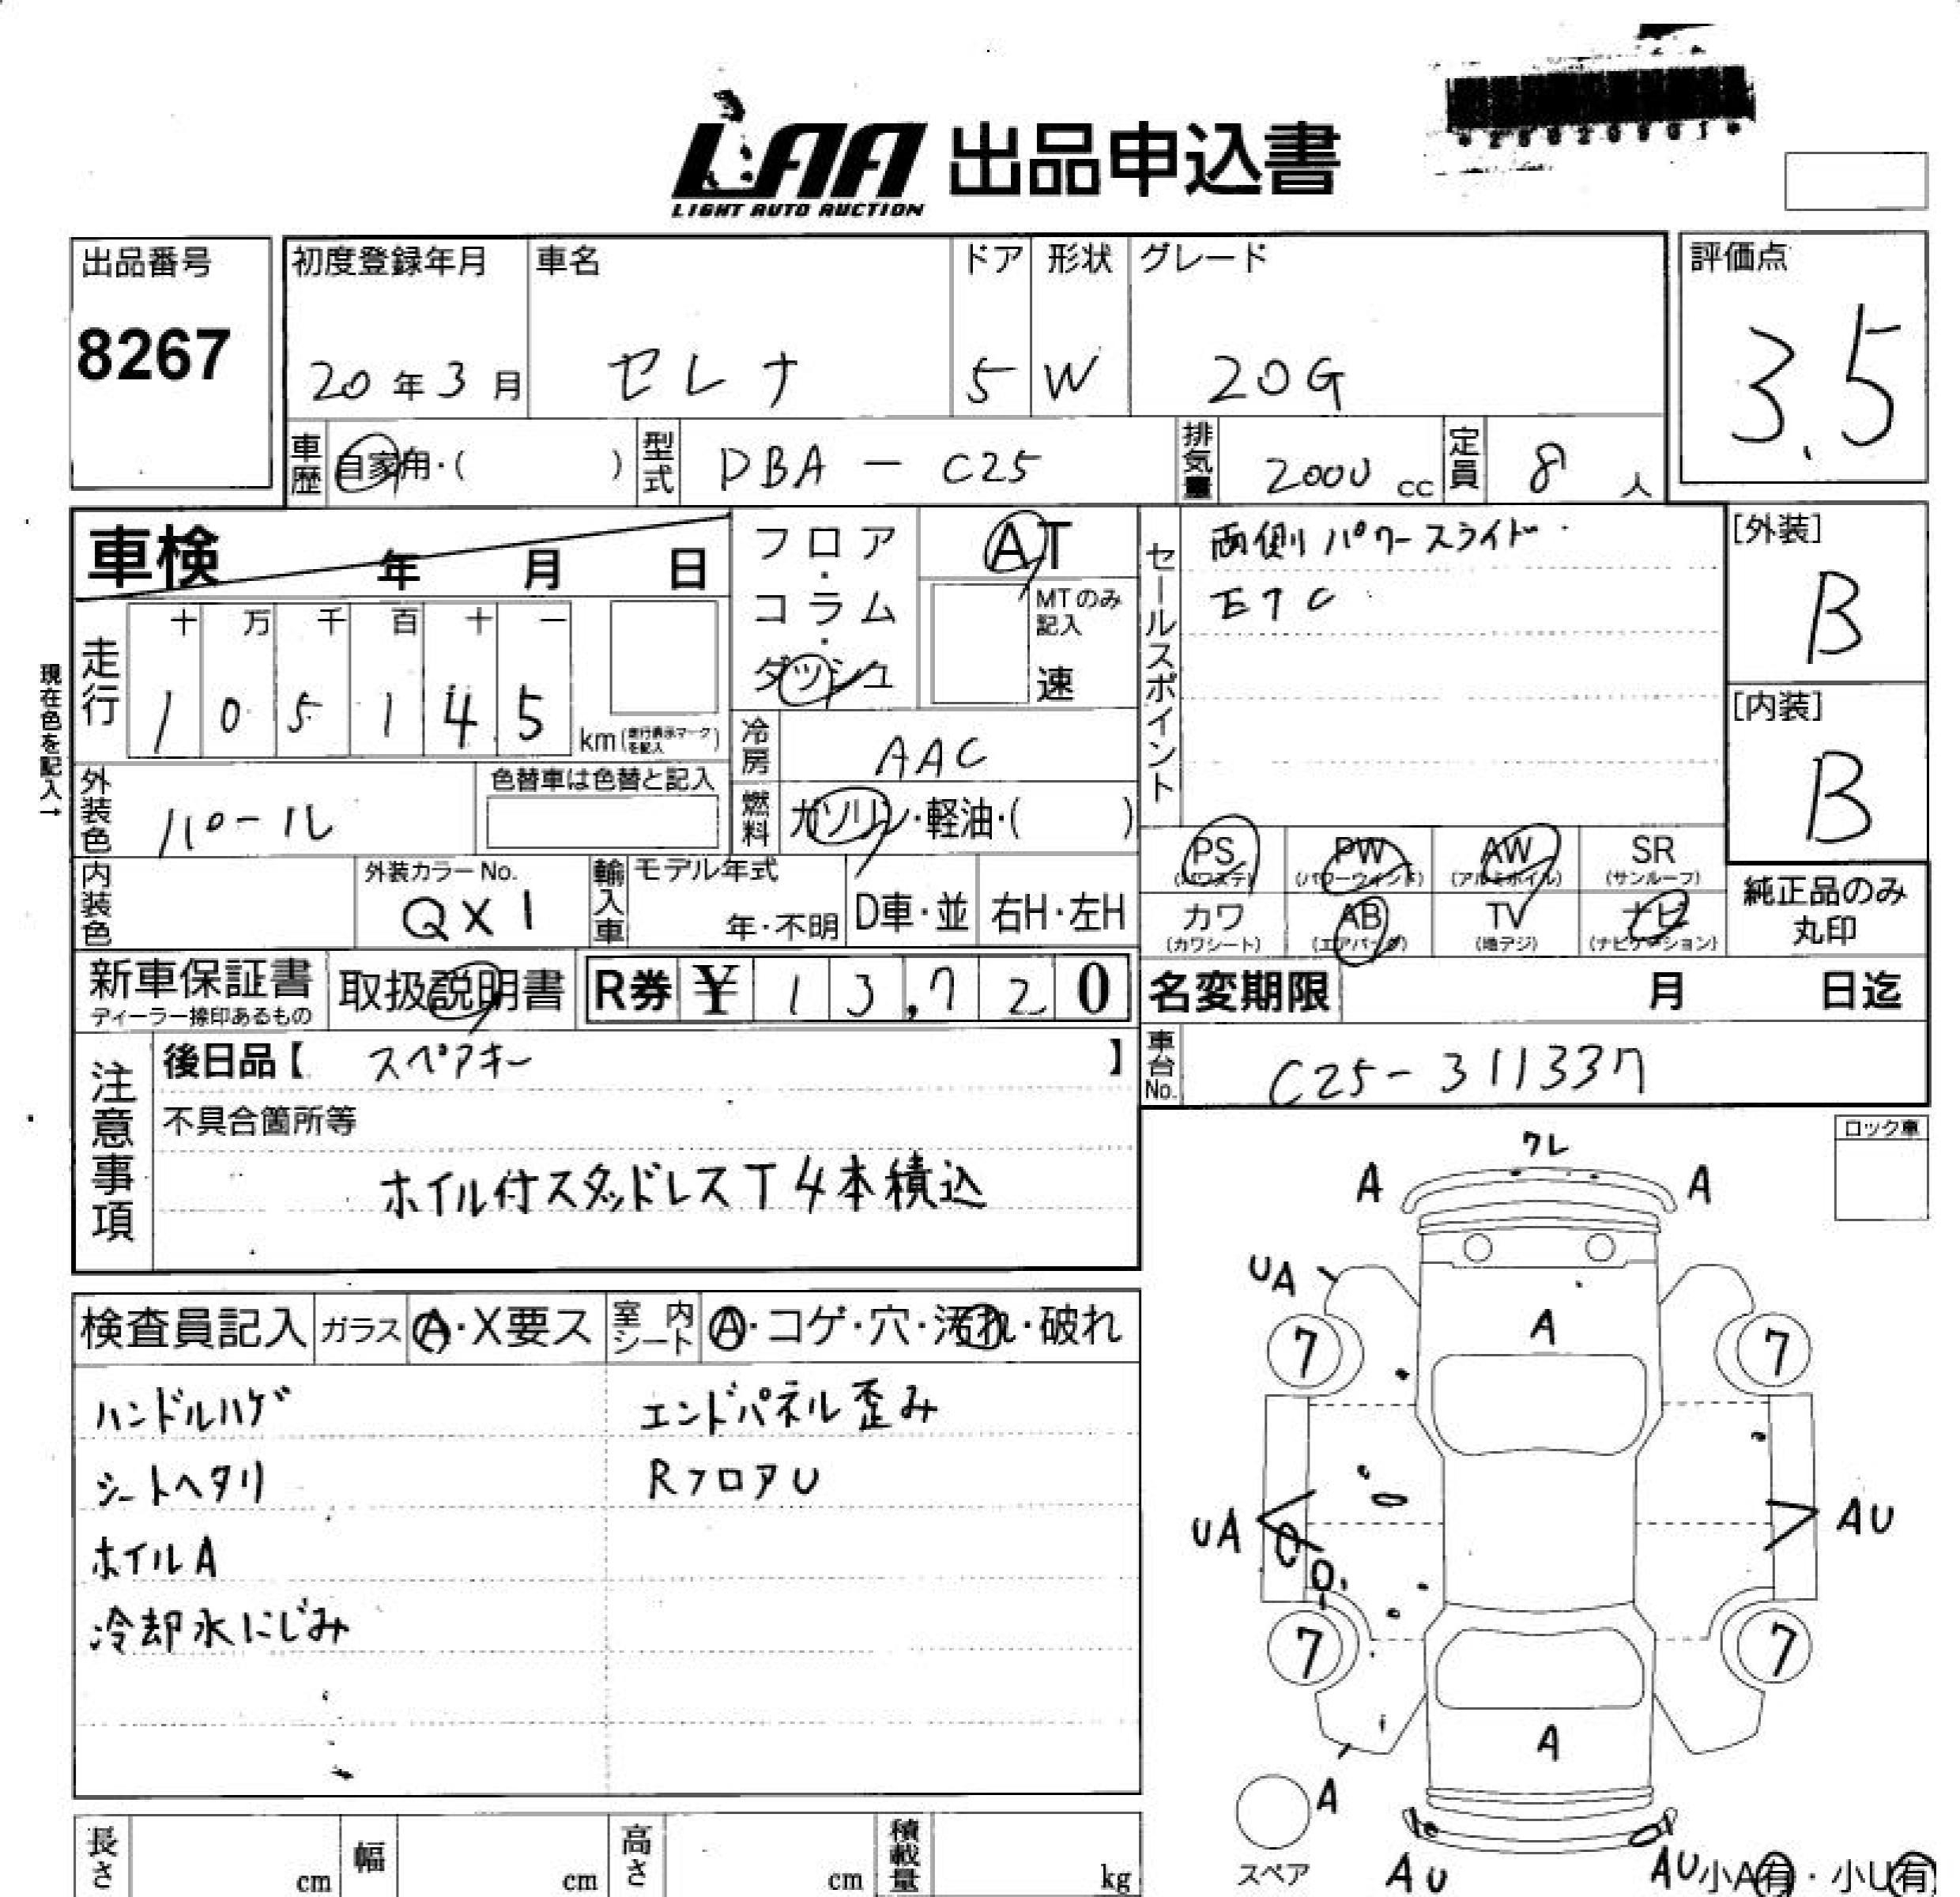 LAA 出品申込書
LIGHT AUTO AUCTION
出品番号
8267
初度登録年月
20年3月
車名
セレナ
ドア
5
形状
W
グレード
20G
評価点
3.5
車歴
自家用・( )
型式
DBA - C25
排気量
2000 cc
定員
8 人
車検 年 月 日
現在色を記入→
走行
十 万 千 百 十 一
1 0 5 1 4 5
km(走行表示マークを記入)
フロア・コラム・ダッシュ
AT
MTのみ記入
速
セールスポイント
両側パワースライド
ETC
[外装]
B
[内装]
B
外装色
パール
色替車は色替と記入
冷房
AAC
燃料
ガソリン・軽油・( )
内装色
外装カラーNo.
QX1
輸入車
モデル年式
年・不明
D車・並
右H・左H
PS
(パワステ)
PW
(パワーウインド)
AW
(アルミホイル)
SR
(サンルーフ)
カワ
(カワシート)
AB
(エアバッグ)
TV
(地デジ)
ナビ
(ナビゲーション)
純正品のみ
丸印
新車保証書
ディーラー捺印あるもの
取扱説明書
R券 ¥ 1 3,7 2 0
名変期限 月 日迄
車台No.
C25-311337
注意事項
後日品【 スペアキー 】
不具合箇所等
ホイル付スタッドレスT4本積込
ロック車
検査員記入
ガラス
A・X要ス
室内シート
A・コゲ・穴・汚れ・破れ
ハンドルハゲ
エンドパネル歪み
シートヘタリ
RフロアU
ホイルA
冷却水にじみ
ワレ
A
A
UA
A
7
7
UA
AU
7
7
A
A
スペア
AU
AU
小A有・小U有
長さ
cm
幅
cm
高さ
cm
積載量
kg